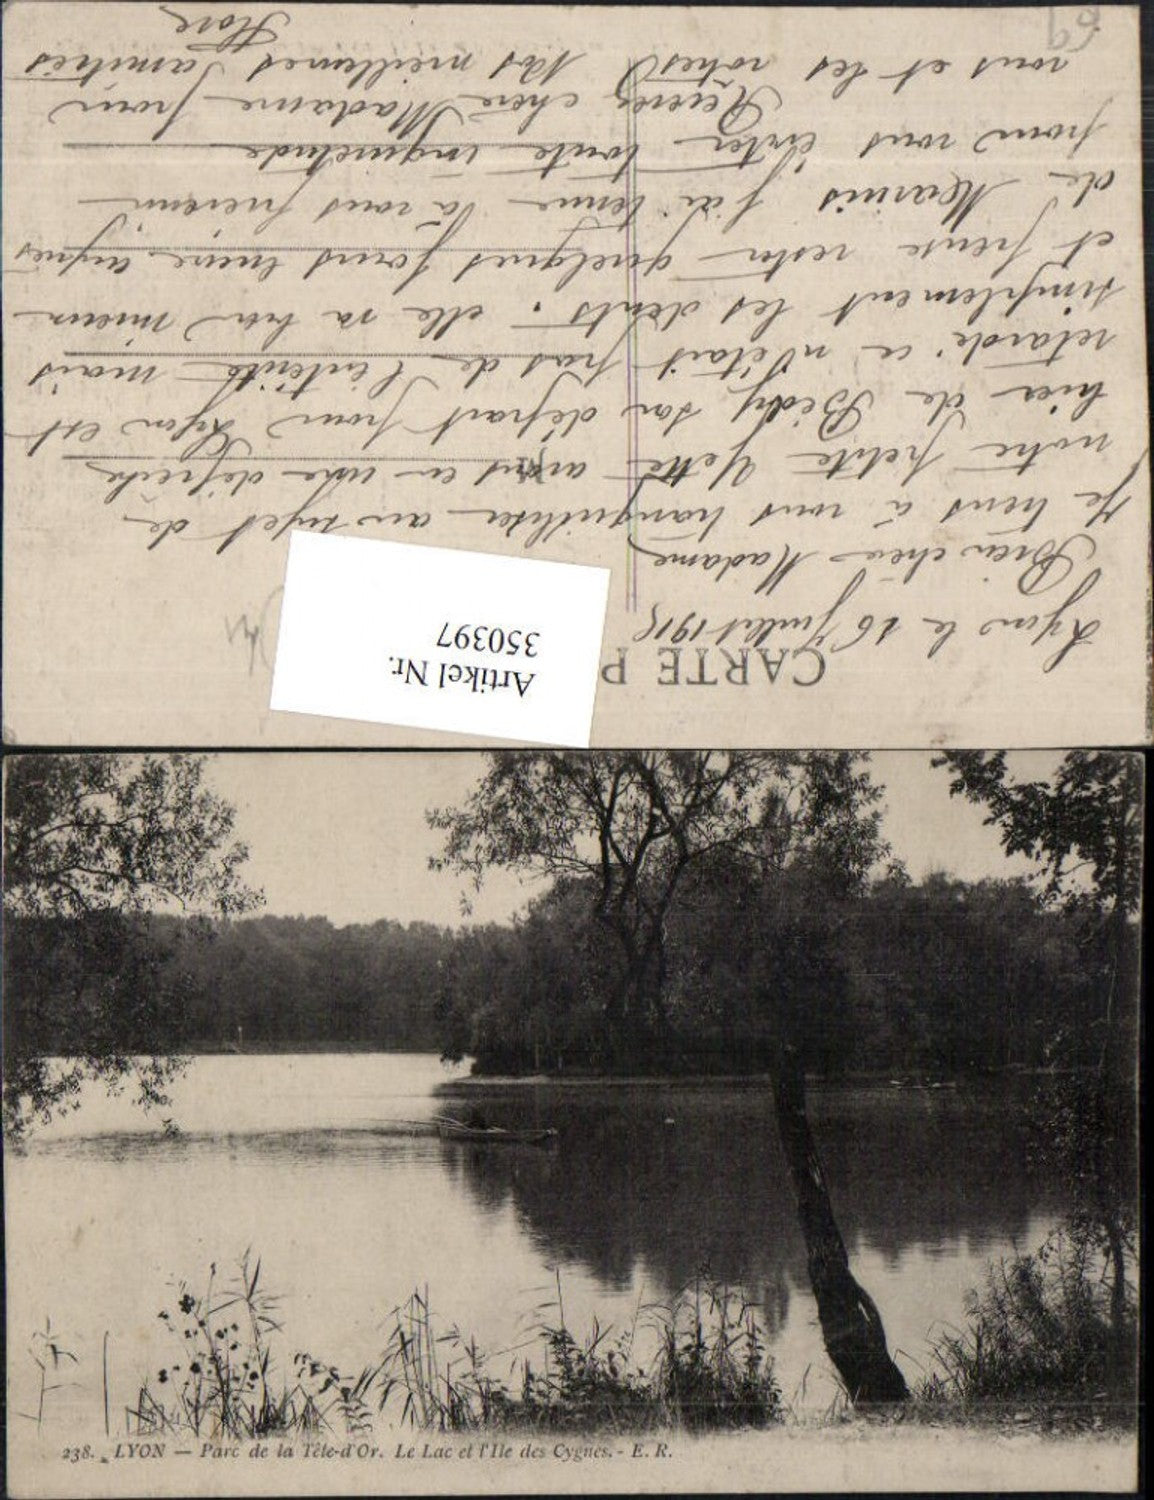 CARTE P
Artikel Nr.
350397
Lyon le 16 Juillet 1915
Bien chère Madame,
Je tiens à vous tranquiliser au sujet de
notre petite Yette avons eu une dépêche
hier de son départ pour Lyon est
retardé ce n'était pas de l'entérite mais
simplement les dents. elle va bien mieux
et pense rester quelques jours encore auprès
de j'ai tenue à vous prévenir
pour vous éviter toute inquiétude
Recevez chère Madame pour
vous et les votres Nos meilleures amitiés
69
238. LYON — Parc de la Tête-d'Or. Le Lac et l'Ile des Cygnes. - E. R.